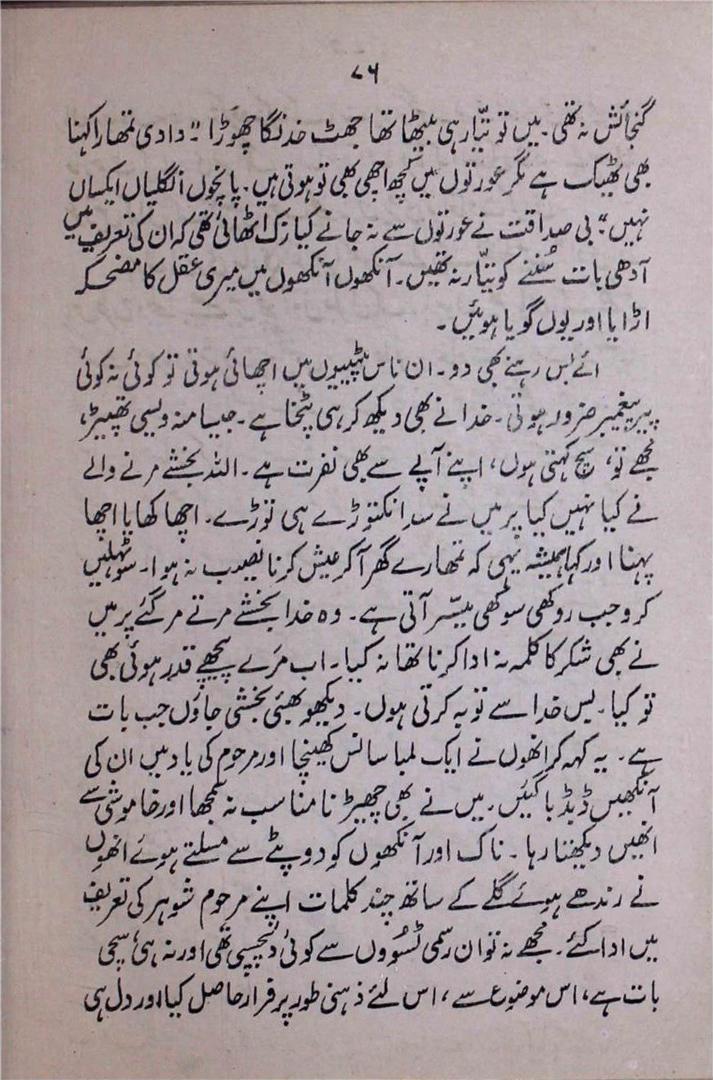 ۷۶
گنجائش نہ تھی۔ میں تو تیار ہی بیٹھا تھا جھٹ خدنگا چھوڑا "دادی تمھارا کہنا
بھی ٹھیک ہے مگر عورتوں میں کچھ اچھی بھی تو ہوتی ہیں۔ پانچوں انگلیاں ایکساں
نہیں"۔ بی صداقت نے عورتوں سے نہ جانے کیا زک اٹھائی تھی کہ ان کی تعریف میں
آدھی بات سُننے کو تیّار نہ تھیں۔ آنکھوں آنکھوں میں میری عقل کا مضحکہ
اڑایا اور یوں گویا ہوئیں۔
ائے بس رہنے بھی دو۔ ان ناس پیٹیوں میں اچھائی ہوتی تو کوئی نہ کوئی
پیر پیغمبر ضرور ہوتی۔ خدا نے بھی دیکھ کر ہی پٹخا ہے۔ جیسا منہ ویسی تھپیڑ،
مجھے تو، سچ کہتی ہوں، اپنے آپے سے بھی نفرت ہے۔ اللہ بخشے مرنے والے
نے کیا نہیں کیا پر میں نے سدا نکتوڑے ہی توڑے۔ اچھا کھایا اچھا
پہنا اور کہا ہمیشہ یہی کہ تمھارے گھر آ کر عیش کرنا نصیب نہ ہوا۔ سو ٹہلیں
کرو جب روکھی سوکھی میسّر آتی ہے۔ وہ خدا بخشے مرتے مر گئے پر میں
نے بھی شکر کا کلمہ نہ ادا کرنا تھا نہ کیا۔ اب مَرے پیچھے قدر ہوئی بھی
تو کیا۔ بس خدا سے توبہ کرتی ہوں۔ دیکھو بھئی بخشی جاؤں جب بات
ہے۔ یہ کہہ کر انھوں نے ایک لمبا سانس کھینچا اور مرحوم کی یاد میں ان کی
آنکھیں ڈبڈبا گئیں۔ میں نے بھی چھیڑنا مناسب نہ سمجھا اور خاموشی سے
انھیں دیکھتا رہا۔ ناک اور آنکھوں کو دوپٹے سے مسلتے ہوئے انھوں
نے رندھے ہوئے گلے کے ساتھ چند کلمات اپنے مرحوم شوہر کی تعریف
میں ادا کئے۔ مجھے نہ تو ان رسمی ٹسووں سے کوئی دلچسپی تھی اور نہ ہی، سچی
بات ہے، اس موضوع سے، اس لئے ذہنی طور پر فرار حاصل کیا اور دل ہی